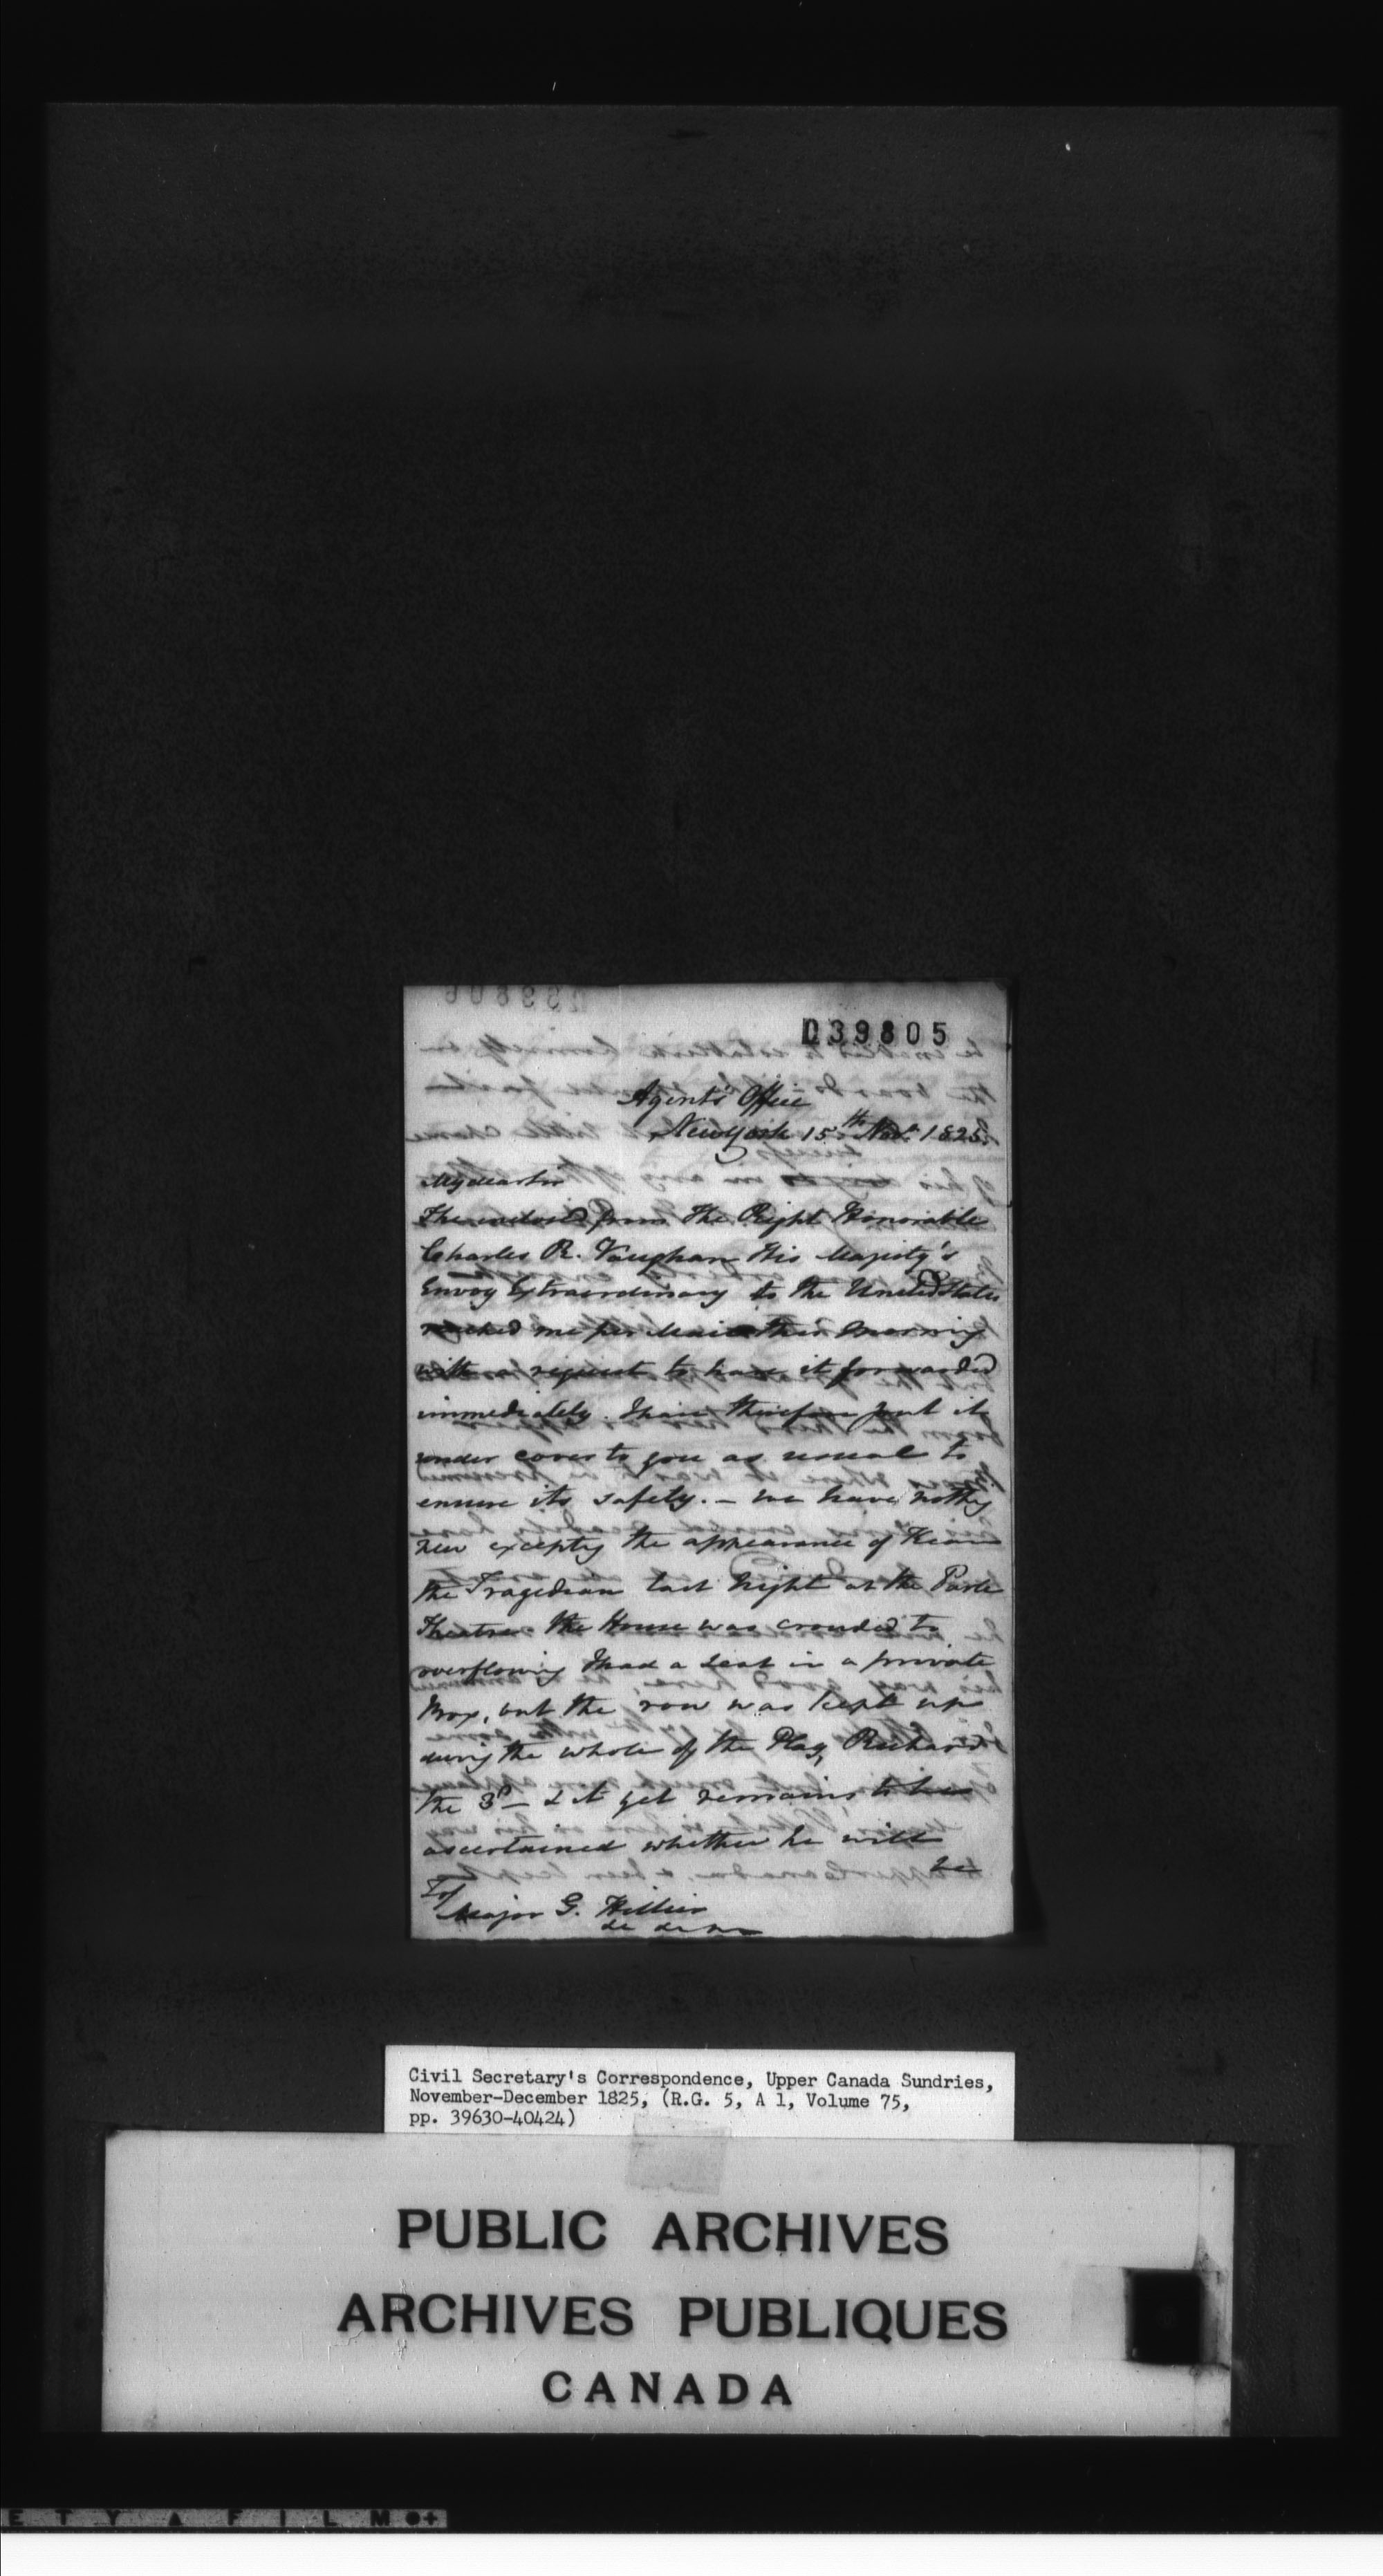 D39805
Agents Office
New York 15th Novr. 1825.
My dear Sir
The enclosed from The Right Honorable
Charles R. Vaughan His Majesty's
Envoy Extraordinary to the United States
reached me per Mail this morning
with a request to have it forwarded
immediately. I have therefore put it
under cover to you as usual to
ensure its safety. – We have nothg
new exceptg the appearance of Kean
the Tragedian last Night at the Park
Theatre the House was crouded to
overflowing I had a seat in a private
Box, but the row was kept up
during the whole of the Play, Richard
the 3d – & it yet remains to be
ascertained whether he will
be
To/
Major G. Hillier
Civil Secretary's Correspondence, Upper Canada Sundries,
November-December 1825, (R.G. 5, A 1, Volume 75,
pp. 39630-40424)
PUBLIC ARCHIVES
ARCHIVES PUBLIQUES
CANADA
E T Y A F I L M